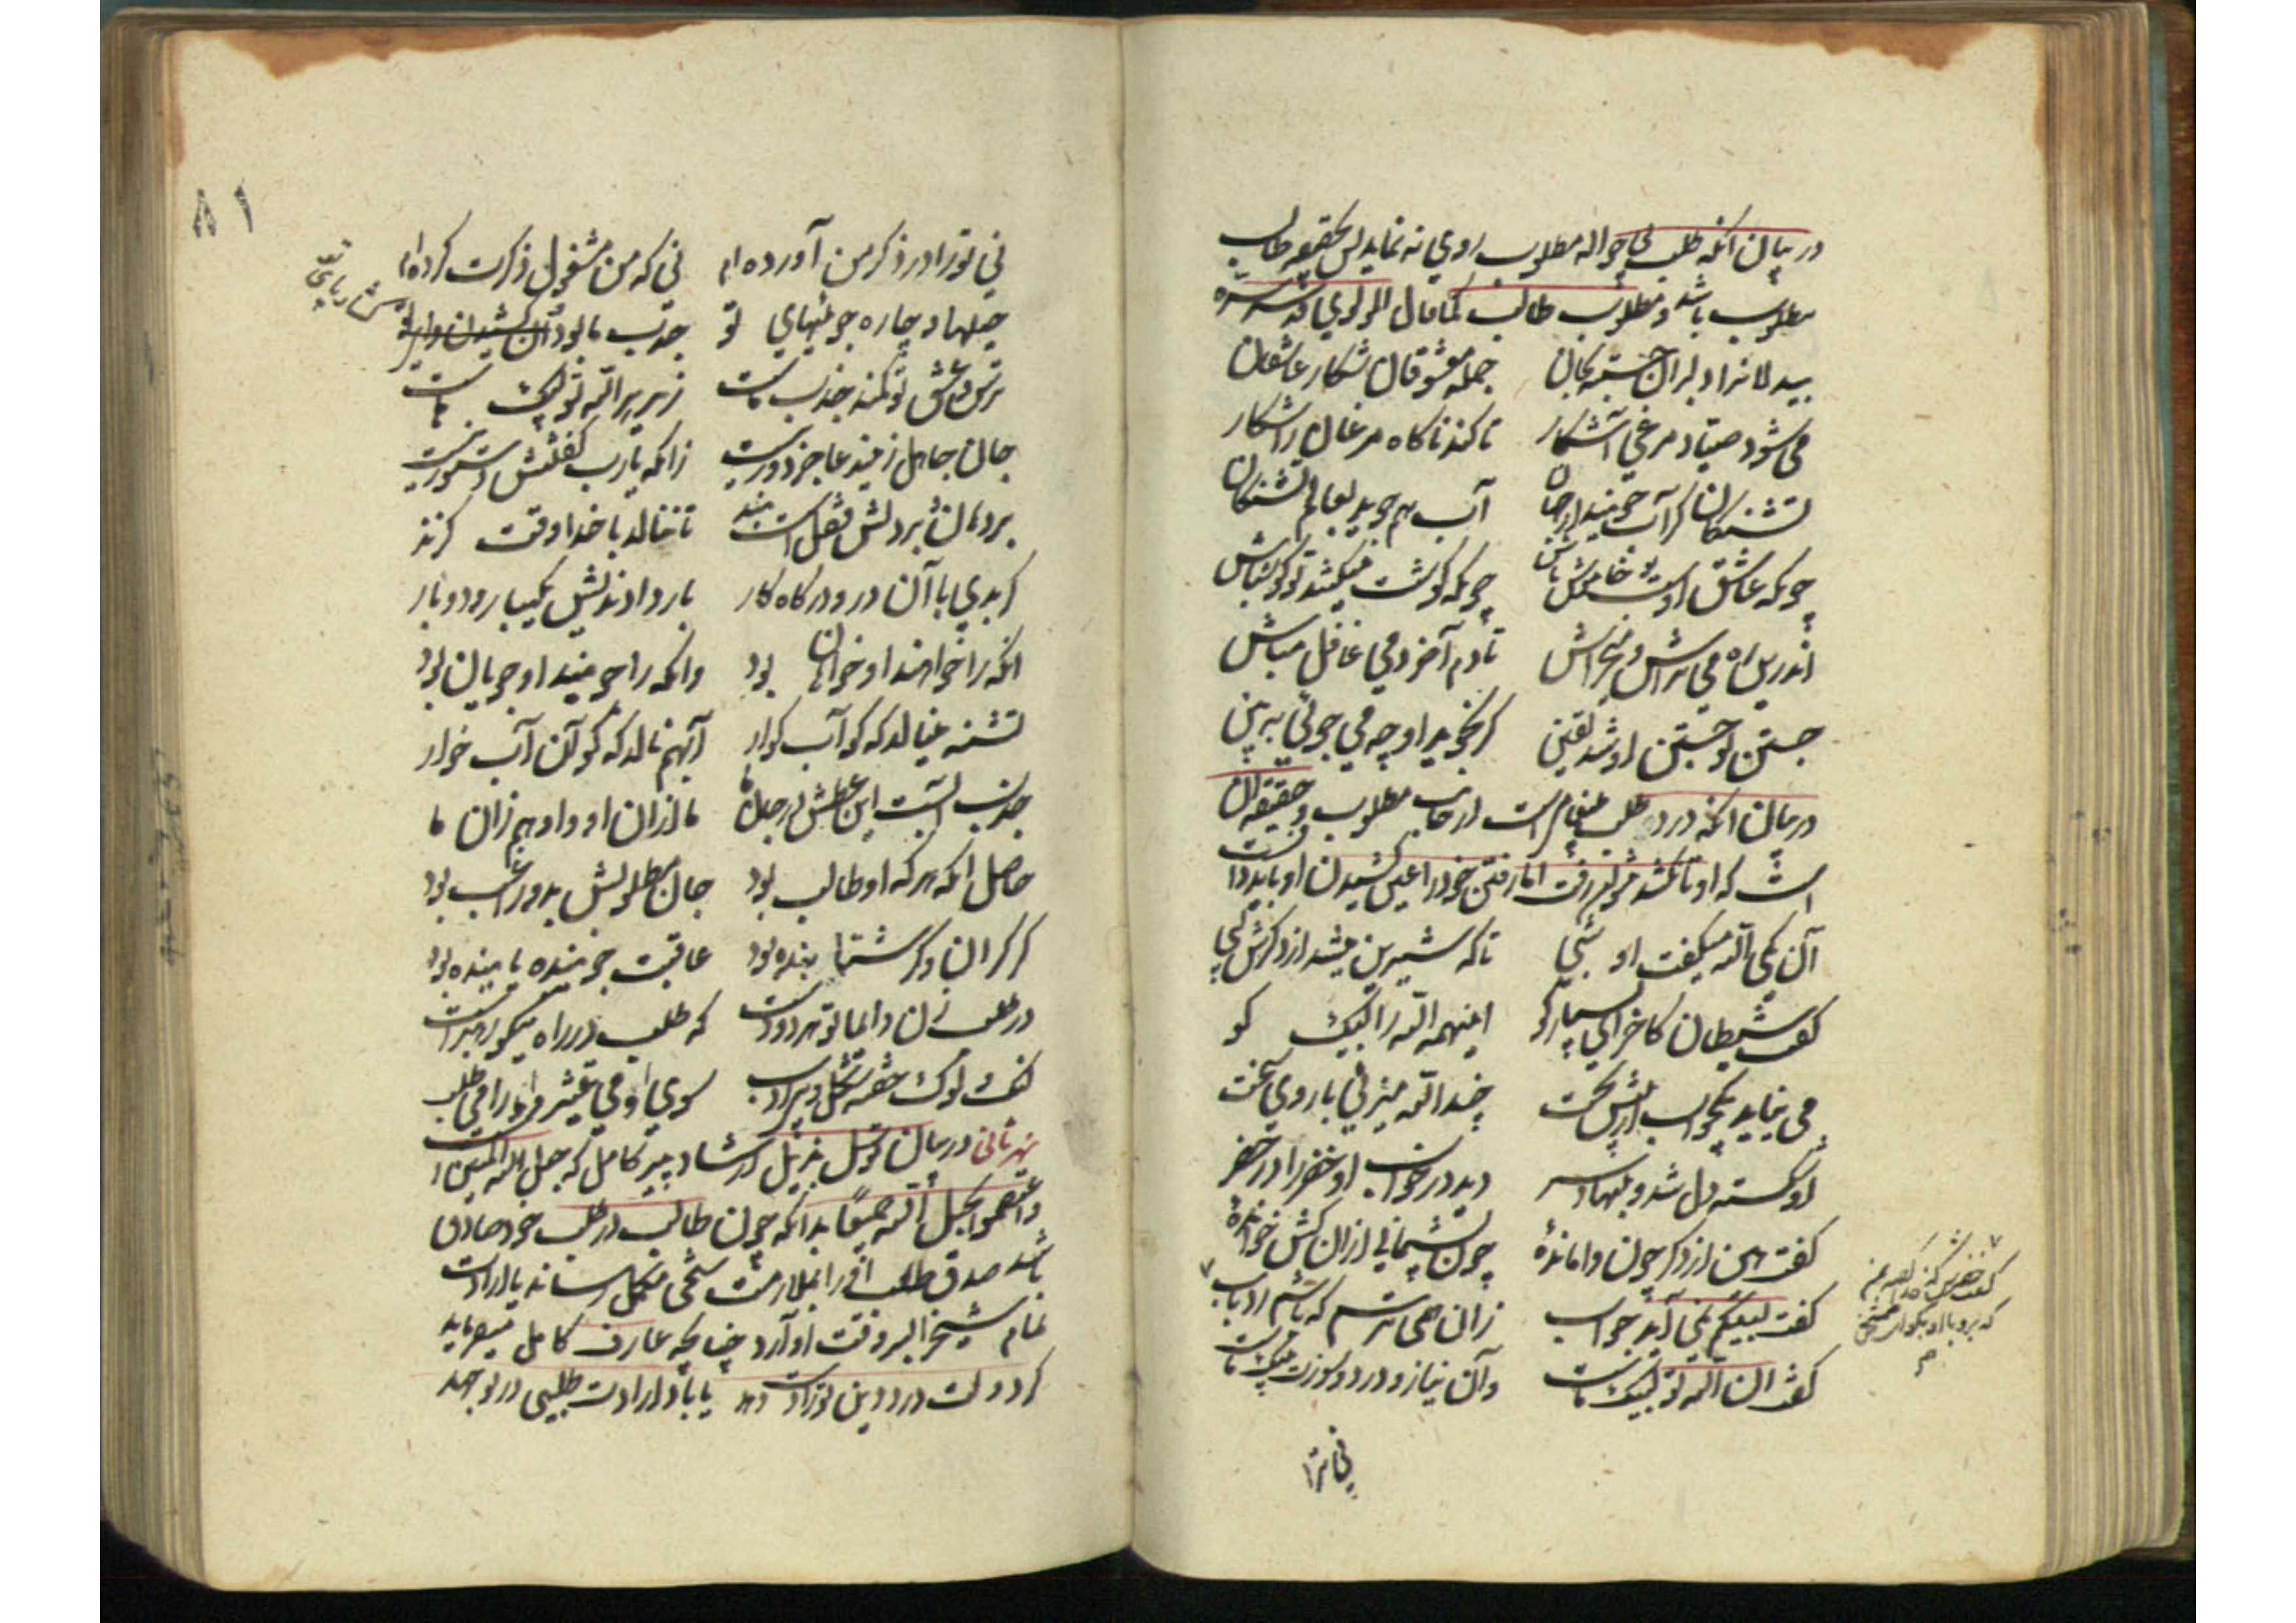 در بیان آنکه طلب بی حواله مطلوب روی نه نماید پس بحقیقه طالب
مطلوب باشد و مطلوب طالب کما قال المولوی قدس سره
بیدلانرا دلبران جسته بجان جمله معشوقان شکار عاشقان
می شود صیاد مرغی آشکار تا کند ناکاه مرغانرا شکار
تشنکان کر آب جویند از جهان آب هم جوید بعالم تشنکان
چونکه عاشق اوست تو خاموش باش چونکه کوشت میکشد تو کوش باش
اندرین راه می تراش و میخراش تا دم آخر دمی غافل مباش
جستن تو جستن او شد یقین کر نجوید او چه می جوئی ببین
در بیان آنکه درد طلب پیغام است از جانب مطلوب و حقیقه آن
است که او تا نکشد نتوان رفت اما رفتن خود را عین کشیدن او باید دانست
آن یکی الله میکفت او شبی تا که شیرین میشد از ذکرش لبی
کفت شیطان کاخر ای بسیارکو اینهمه الله را لبیک کو
می نیاید یکجواب از پیش تخت چند الله میزنی با روی سخت
او شکسته دل شد و بنهاد سر دید در خواب او خضر را در خضر
کفت هین از ذکر چون واماندهٔ چون پشیمانی از آن کش خواندهٔ
کفت لبیکم نمی آید جواب زان همی ترسم که باشم رد باب
کفت آن الله تو لبیک ماست وآن نیاز و درد و سوزت پیک ماست
کفت خضرش که خدا کفت این بمن
که برو با او بکو ای ممتحن
نی ترا
۸۱
نی تو را در ذکر من آورده ام نی که من مشغول ذکرت کرده ام
حیلها و چاره جوئیهای تو جذب ما بود آن کشیدن
ترس و عشق تو کمند جذب ماست زیر هر الله تو لبیک ماست
جان جاهل زین دعا جز دور نیست زانکه یارب کفتنش دستور نیست
بر دهان و بر دلش قفل است و بند تا ننالد با خدا وقت کزند
بار دادندش یکیبار و دو بار
آنکه را خواهند او خواهان بود وانکه را جویند او جویان بود
تشنه مینالد که کو آب کوار آب هم نالد که کو آن آب خوار
جذب آبست این عطش در جان ما ما از آن او و او هم زان ما
حاصل آنکه هر که او طالب بود جان مطلوبش بدو راغب بود
کر کران و کر شتابنده بود عاقبت جوینده یابنده بود
در طلب زن دائما تو هر دو دست که طلب در راه نیکو رهبر است
لنک و لوک و خفته شکل و بی ادب سوی او می غیژ و او را می طلب
نهر ثانی در بیان توسل بذیل ارشاد پیر کامل که حبل الله المتین است
واعتصموا بحبل الله جمیعًا بدانکه چون طالب در طلب خود صادق
باشد صدق طلب او را بملازمت شیخی مکمل رساند یا ارادت
تمام شیخ را بر وقت او آرد چنانچه عارف کامل میفرماید